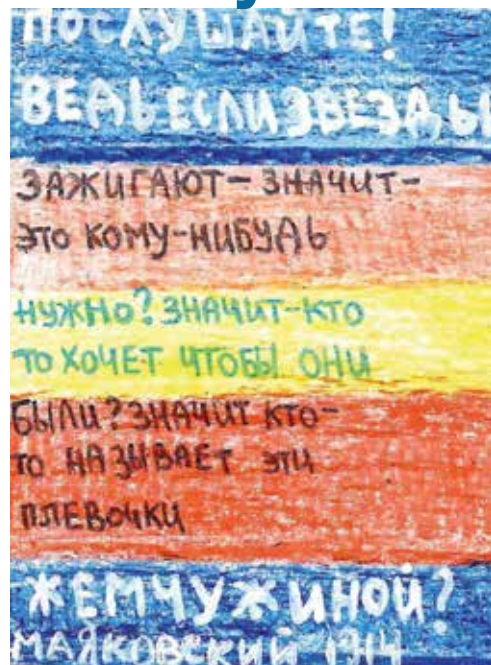 ПОСЛУШАЙТЕ!
ВЕДЬ ЕСЛИ ЗВЕЗДЫ
ЗАЖИГАЮТ- ЗНАЧИТ-
ЭТО КОМУ-НИБУДЬ
НУЖНО? ЗНАЧИТ-КТО
ТО ХОЧЕТ ЧТОБЫ ОНИ
БЫЛИ? ЗНАЧИТ КТО-
ТО НАЗЫВАЕТ ЭТИ
ПЛЕВОЧКИ
ЖЕМЧУЖИНОЙ?
МАЯКОВСКИЙ 1914